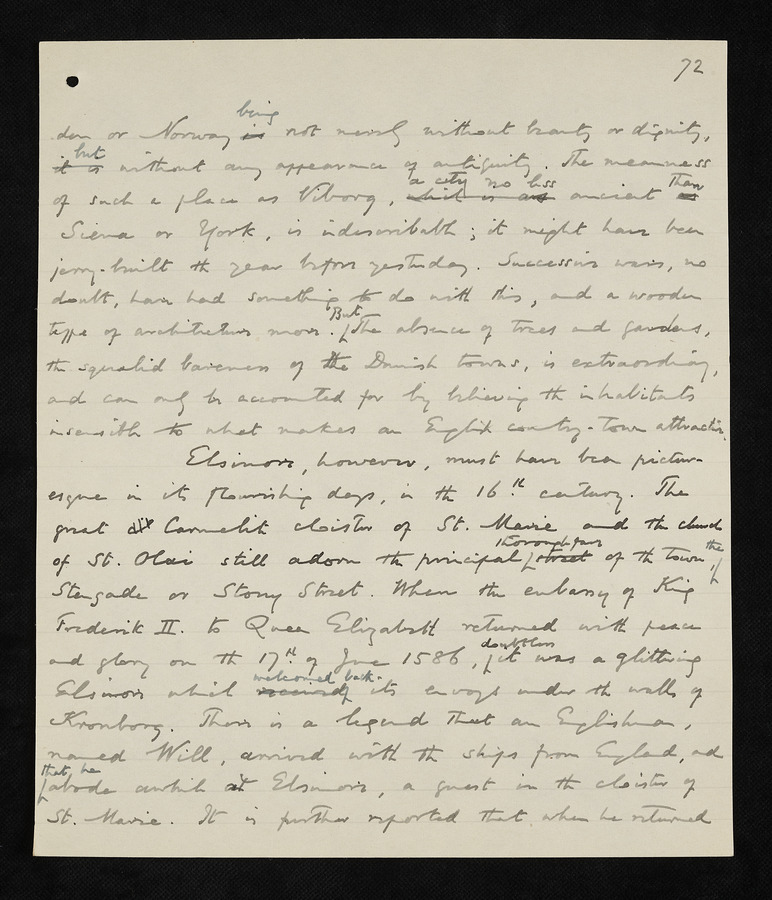 72
den or Norway is being not merely without beauty or dignity,
it is but without any appearance of antiquity. The meanness
of such a place as Viborg, which is as a city no less ancient as than
Siena or York, is indescribable; it might have been
jerry-built the year before yesterday. Successive wars, no
doubt, have had something to do with this, and a wooden
type of architecture more. But The absence of trees and gardens,
the squalid bareness of the Danish towns, is extraordinary,
and can only be accounted for by believing the inhabitants
insensible to what makes an English country-town attractive.
Elsinore, however, must have been pictur-
esque in its flourishing days, in the 16th century. The
great Carmelite cloister of St. Marie and the church
of St. Olai still adorn the principal street thoroughfare of the town, the
Stengade or Stony Street. When the embassy of King
Frederik II. to Queen Elizabeth returned with peace
and glory on the 17th of June 1586, doubtless it was a glittering
Elsinore which received welcomed back its envoys under the walls of
Kronborg. There is a legend that an Englishman,
named Will, arrived with the ships from England, and
that he abode awhile at Elsinore, a guest in the cloister of
St. Marie. It is further reported that when he returned